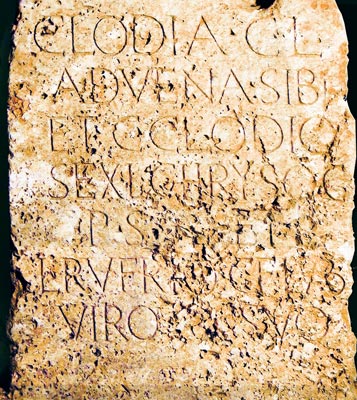 CLODIA C L
ADVENA SIBI
ET C CLODIO
SEX L CHRYSOG
P S ET
VIRO SVO